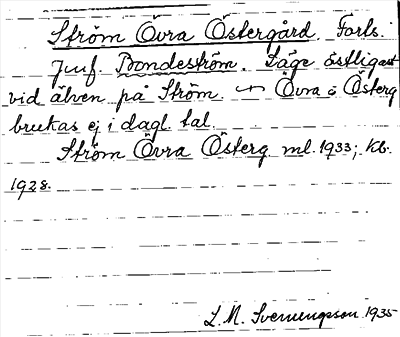 Ström Övra Östergård. Forts.
Jmf. Bondeström. Läge östligast
vid älven på Ström. ~ Övra o Österg
brukas ej i dagl. tal.
Ström Övra Österg. ml. 1933; Kb.
1928.
L. M. Svenungsson. 1935